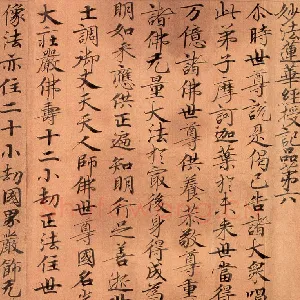 妙法蓮華經授記品第六
尒時世尊說是偈已告諸大衆唱
此弟子摩訶迦葉於未來世當得
万億諸佛世尊供養恭敬尊重
諸佛无量大法於㝡後身得成爲
明如來應供正遍知明行足善逝世
士調御丈夫天人師佛世尊國名光
大莊嚴佛壽十二小劫正法住世
像法亦住二十小劫國界嚴飾无